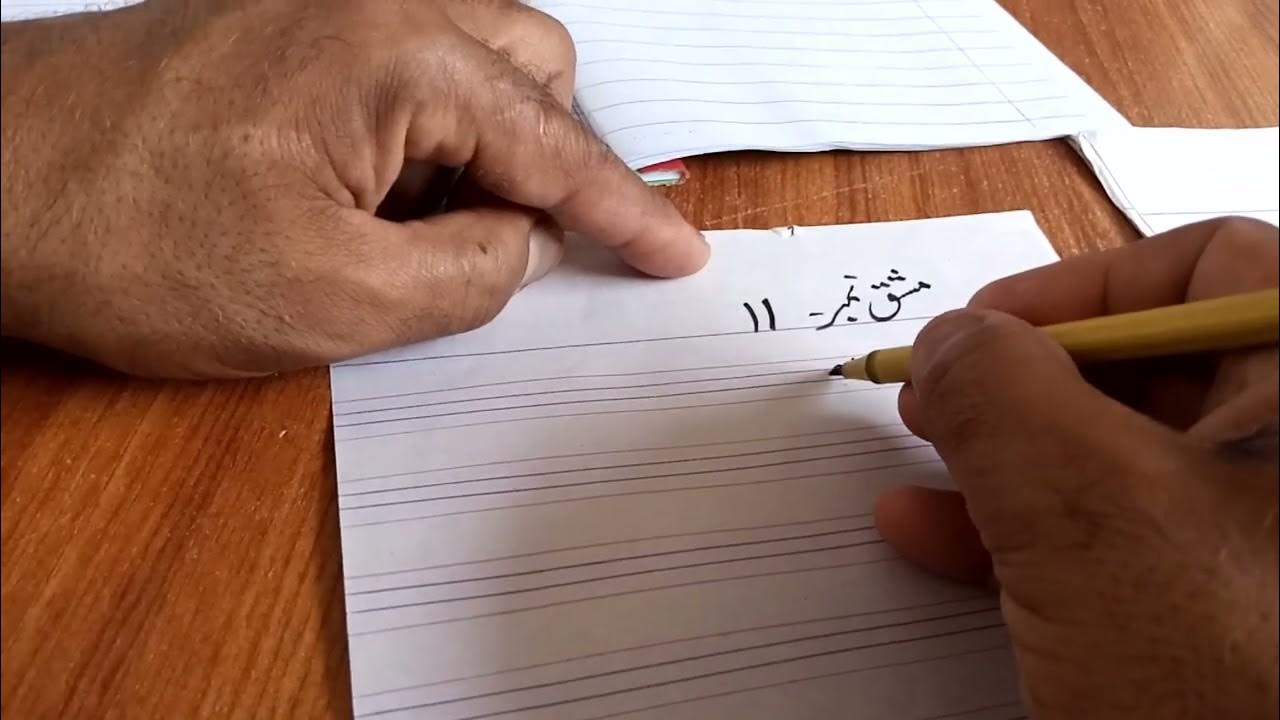 مشق نمبر۔ ۱۱